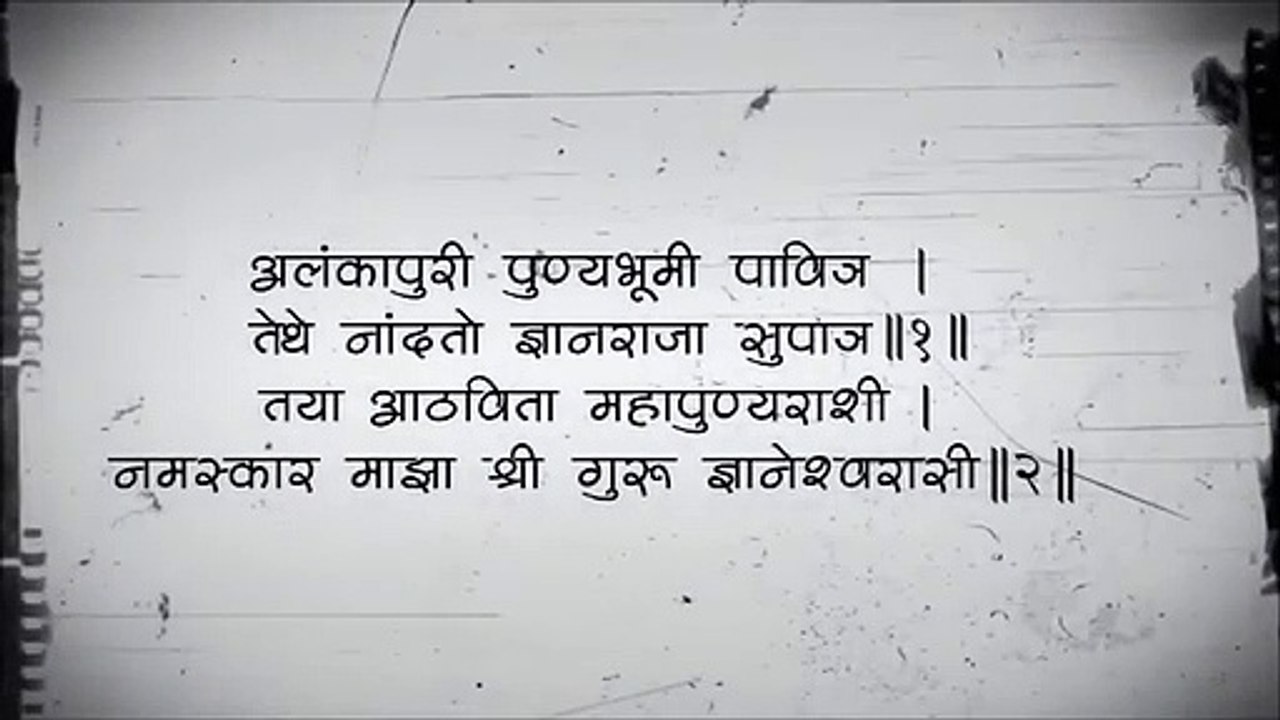 अलंकापुरी पुण्यभूमी पावित्र |
तेथे नांदतो ज्ञानराजा सुपात्र॥१॥
तया आठविता महापुण्यराशी |
नमस्कार माझा श्री गुरू ज्ञानेश्वरासी॥२॥